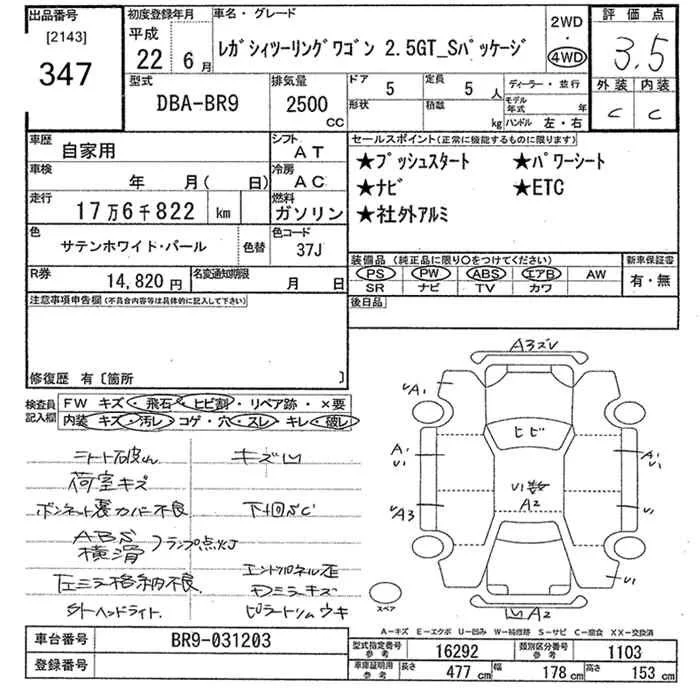 出品番号
[2143]
347
初度登録年月
平成
22 6月
車名・グレード
レガシィツーリングワゴン 2.5GT_Sパッケージ
2WD
・
4WD
評価点
3.5
外装 内装
C C
型式
DBA-BR9
排気量
2500
CC
ドア
5
定員
5人
形状
積載
kg
ディーラー・並行
モデル年式 年
ハンドル 左・右
車歴
自家用
シフト
AT
車検
年 月( 日)
冷房
AC
走行
17万6千822 km
燃料
ガソリン
色
サテンホワイト・パール
色替
色コード
37J
R券
14,820円
名変通知期限
月 日
セールスポイント(正常に機能するものに限ります)
★プッシュスタート ★パワーシート
★ナビ ★ETC
★社外アルミ
装備品 (純正品に限り○をつけてください)
PS PW ABS エアB AW
SR ナビ TV カワ
新車保証書
有・無
後日品
注意事項申告欄(不具合内容等は具体的に記入して下さい)
修復歴 有〔箇所 〕
検査員
記入欄
FW キズ・飛石・ヒビ割・リペア跡・×要
内装 キズ・汚レ コゲ・穴・スレ キレ・破レ
キズ凹
荷室キズ
ボンネット裏カバー不良
下回りSC
ABS
横滑
ランプ点灯
左ミラー格納不良
エンドパネル歪
ミラーキズ
ヘッドライト
ピラートリムウキ
A3ズV
A1
ヒビ
A1
U1
U1
A3
A2
U1
U1
凹A2
スペア
A-キズ E-エクボ U-凹み W-補修跡 S-サビ C-腐食 XX-交換済
車台番号
BR9-031203
登録番号
型式指定番号
参考
16292
類別区分番号
参考
1103
車庫証明用
参考
長さ
477cm
幅
178cm
高さ
153cm